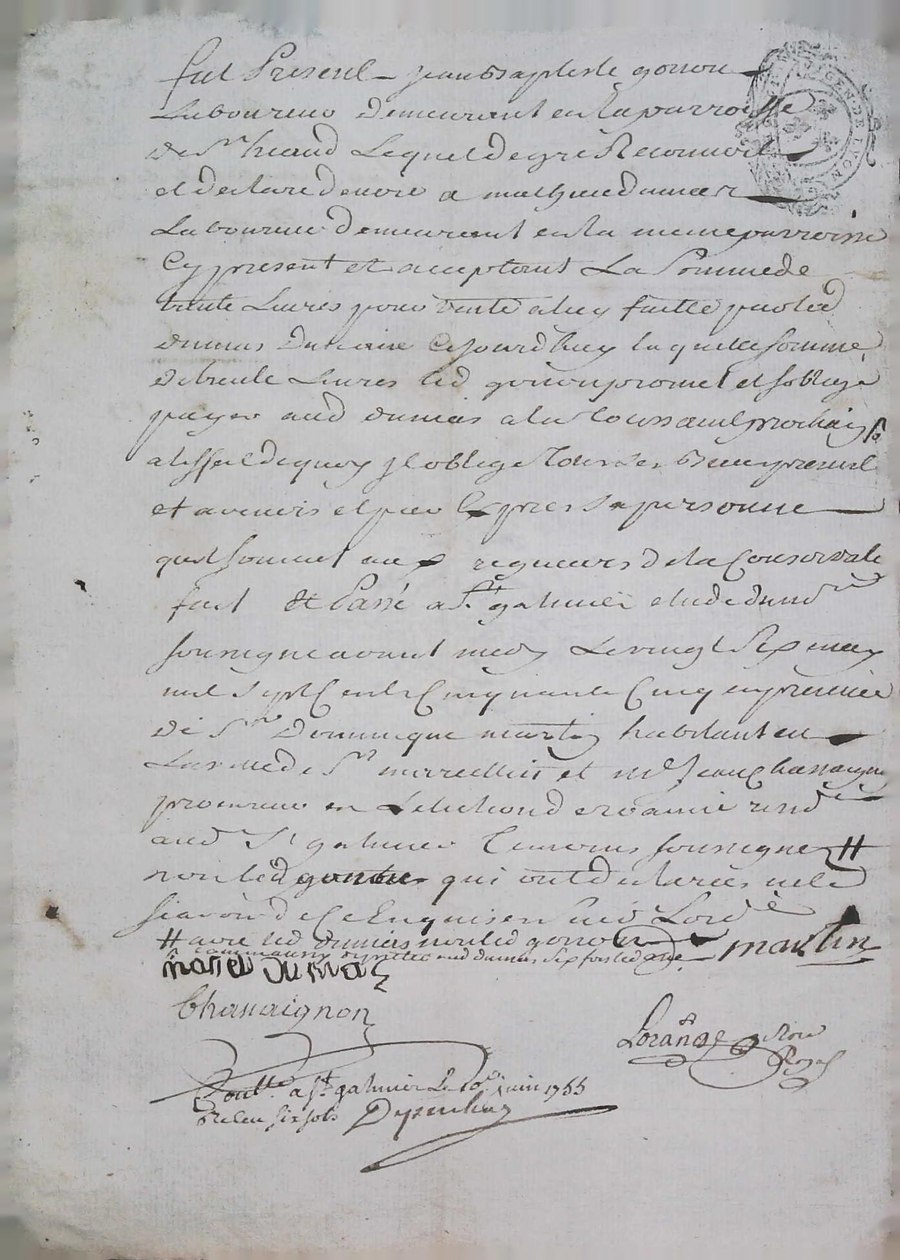 fut Present jean Baptiste gonon
Laboureur demeurant en la parroisse
de St heand Lequel de gré Reconnoit
et declare devoir a mathieu dumas
Laboureur demeurant en la meme parroisse
Cy present et acceptant La Somme de
trente Livres pour vente a luy faitte par led
dumas Cejourdhuy laquelle somme
de trente Livres led gonon promet et soblige
payer aud dumas a la toussaint prochain
a leffet de quoy Il oblige Tous ses Biens present
et avenirs et par Exprès Sa personne
quil soumet aux rigueurs de la Conservate
fait Et Passé a St galmier etude du nore
soussigne avant midy Le vingt Six may
mil Sept Cent Cinquante Cinq en presence
de Sr Dominique martin habitant en
La de St marcellin et me Jean Chassaignon
procureur en Lelection de roanne
aud St galmier Temoins soussignes #
non led gonon qui ont declarées ne le
scavoir de Ce Enquis
# avec led dumas non led gonon
martin
dumas
Chassaignon
Lorañge no.re Royal
Con.lle a St galmier Le 10e juin 1755
six sols